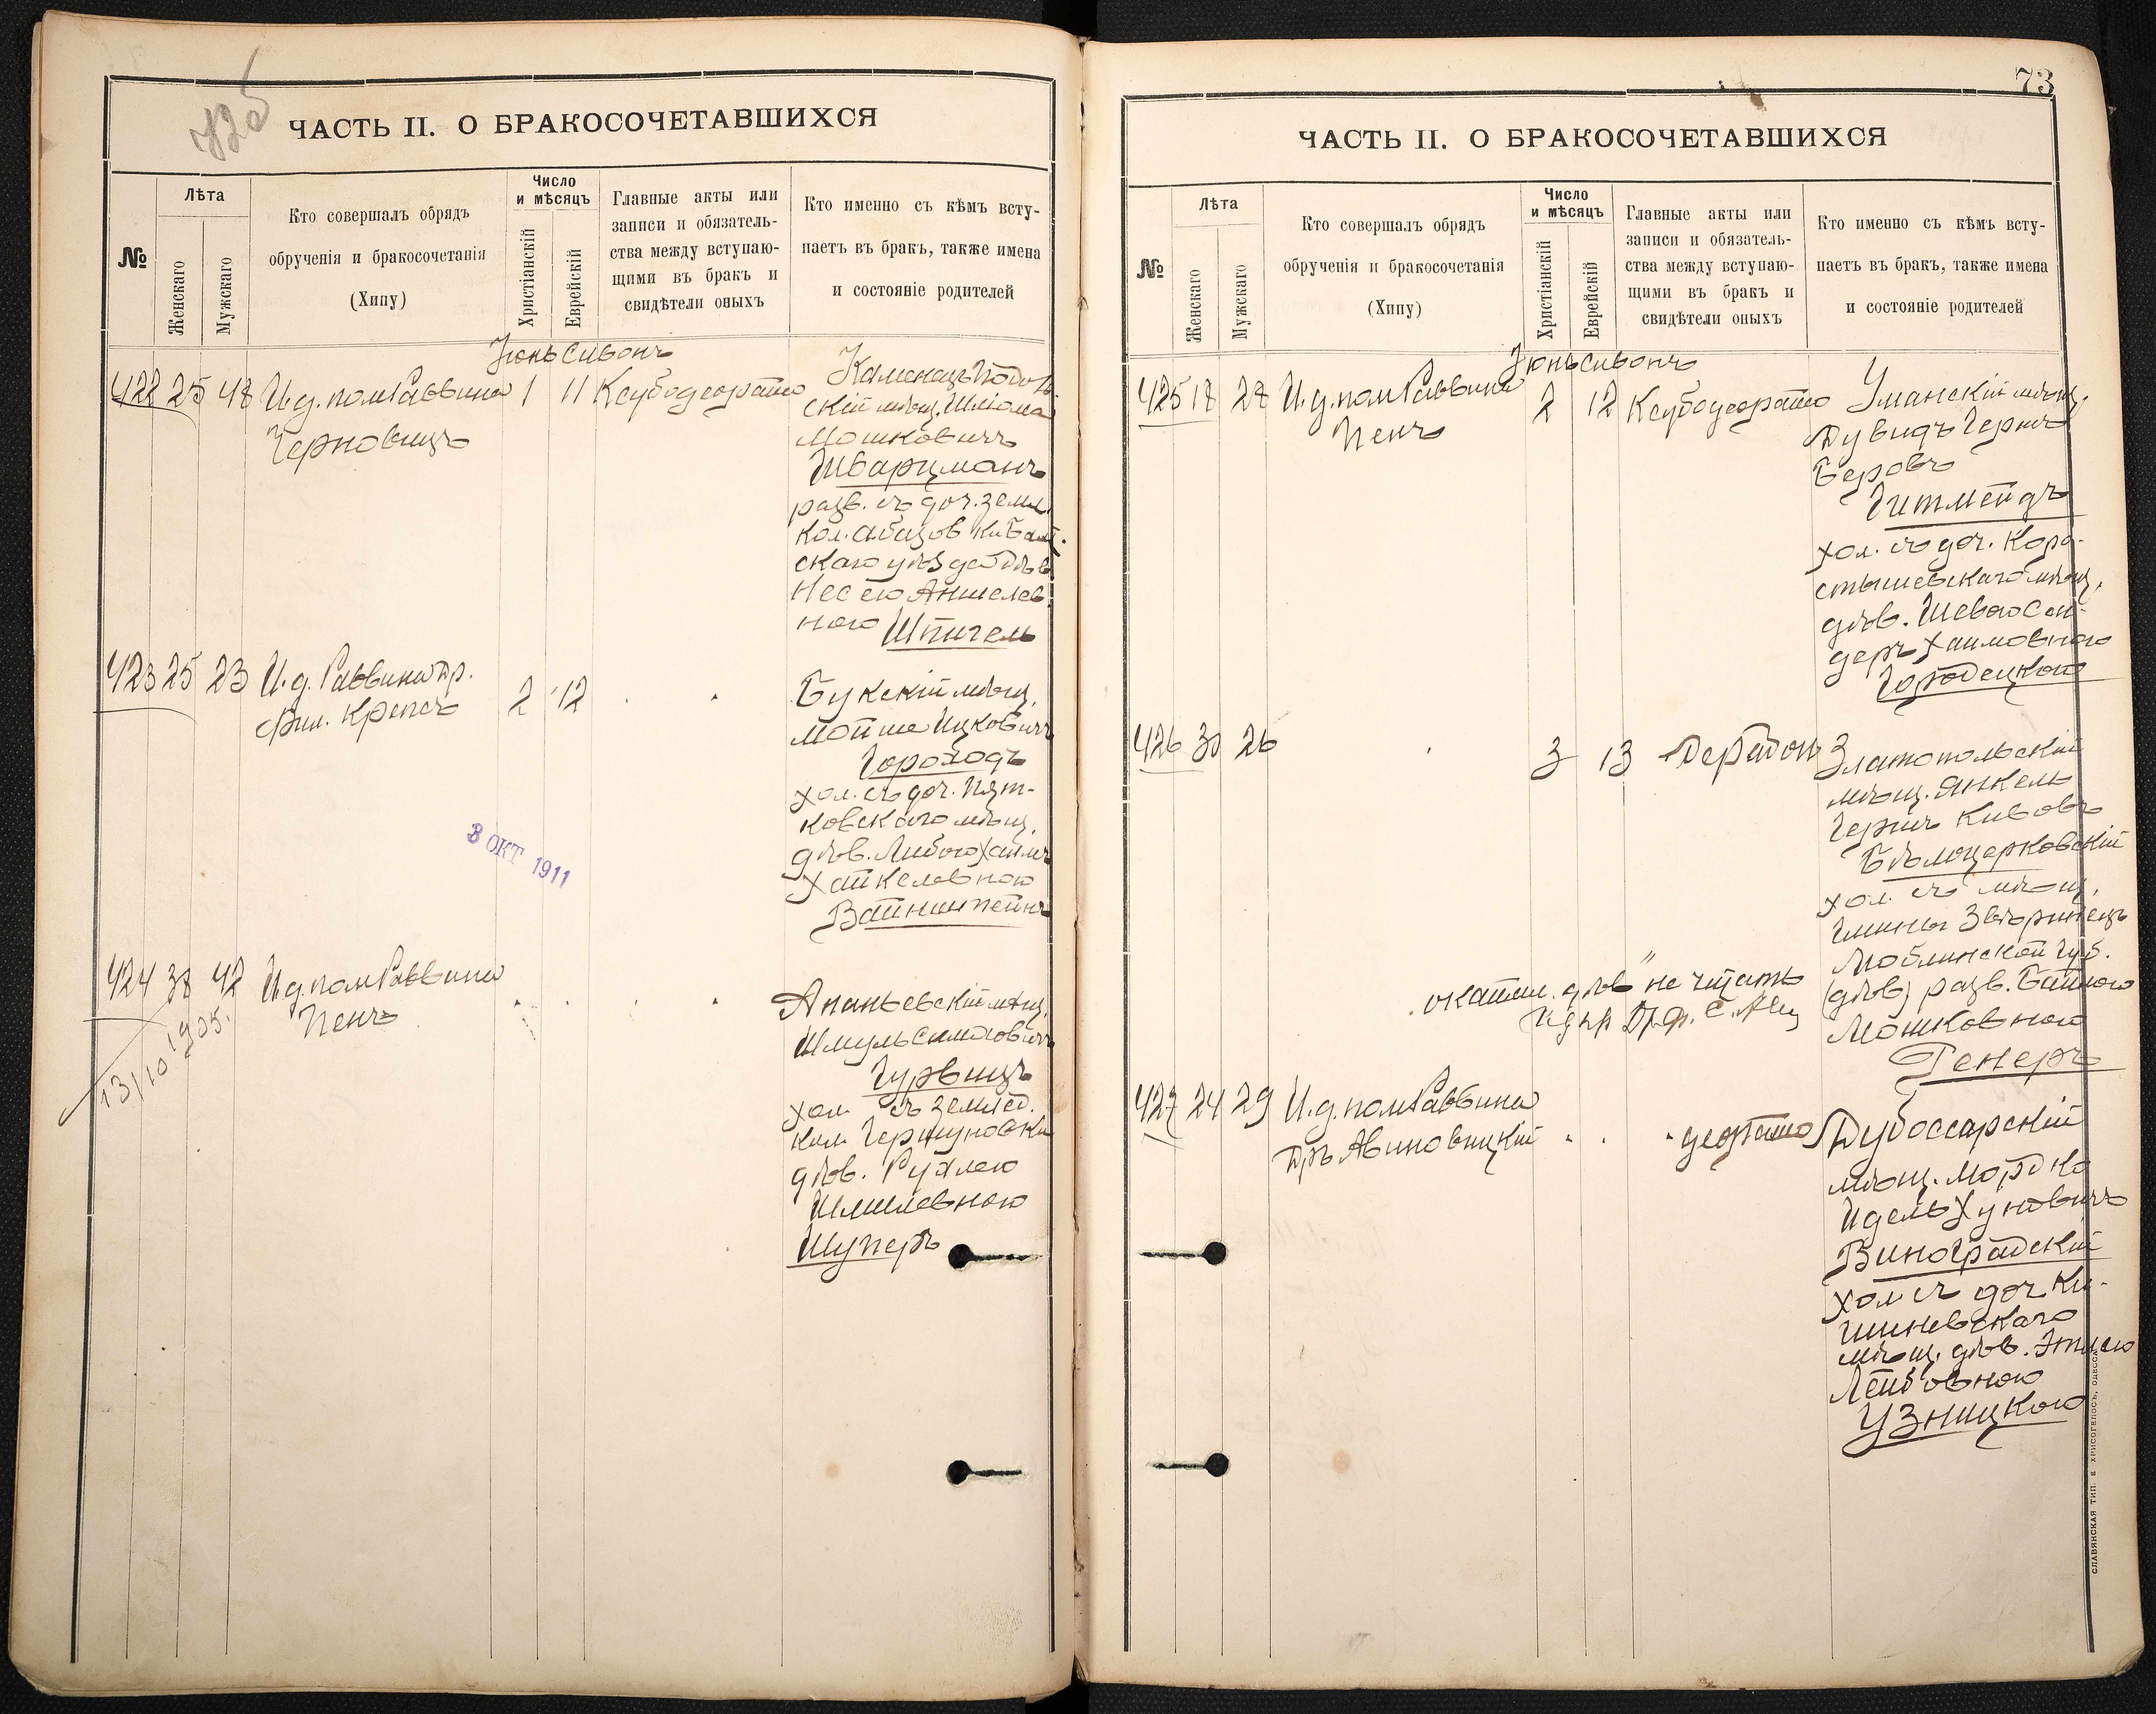 425
ЧАСТЬ II. О БРАКОСОЧЕТАВШИХСЯ
№
Лѣта
Женскаго
Мужскаго
Кто совершалъ обрядъ
обрученія и бракосочетанія
(Хипу)
Число
и мѣсяцъ
Христіанскій
Еврейскій
Главные акты или
записи и обязатель-
ства между вступаю-
щими въ бракъ и
свидѣтели оныхъ
Кто именно съ кѣмъ всту-
паетъ въ бракъ, также имена
и состояніе родителей
Іюнь Сивонъ
422 25 48 И.д. пом Раввина 1 11
Черновицъ
Каменецъ Подоль
скій мѣщ. Шліома
Мошковичъ
Шварцманъ
разв. съ доч. земл.
кол. Абазовки Балт.
скаго уѣзда дѣв.
Несею Аншелев
ною Шпигель
423 25 23 И.д. Раввина Др.
Фил. Крепсъ 2 12
Букскій мѣщ.
Мойше Ицковичъ
Гороходъ
хол. съ доч. Пят-
ковскаго мѣщ.
дѣв. Либою Хаим
Хайкелевною
Вайнштейнъ
3 ОКТ 1911
424 38 42 И.д. пом Раввина
Пенъ
13/10 1905.
Ананьевскій мѣщ.
Шмуль Симоховичъ
Гурвицъ
хол. съ землед.
кол. Гершуновки
дѣв. Рухлею
Шмилевною
Шуперъ
73
ЧАСТЬ II. О БРАКОСОЧЕТАВШИХСЯ
№
Лѣта
Женскаго
Мужскаго
Кто совершалъ обрядъ
обрученія и бракосочетанія
(Хипу)
Число
и мѣсяцъ
Христіанскій
Еврейскій
Главные акты или
записи и обязатель-
ства между вступаю-
щими въ бракъ и
свидѣтели оныхъ
Кто именно съ кѣмъ всту-
паетъ въ бракъ, также имена
и состояніе родителей
Іюнь Сивонъ
425 18 28 И.д. пом Раввина 2 12
Пенъ
Уманскій мѣщ.
Дувидъ Гершъ
Беровъ
Гитмейдъ
хол. съ доч. Коро-
стышевскаго мѣщ.
дѣв. Шевою Сен-
деръ Хаимовною
Городецкою
426 30 26 3 13
Златопольскій
мѣщ. Янкель
Гершъ Кивовъ
Бѣлоцерковскій
хол. съ мѣщ.
Гмины Звѣринецъ
Люблинской губ.
(дѣв) разв. Байлою
Мошковною
Генеръ
дѣв" не читать
427 24 29 И.д. пом Раввина
Дръ Авиновицкій
Дубоссарскій
мѣщ. Мордко
Идель Хуновичъ
Виноградскій
хол съ доч Ки-
шиневскаго
мѣщ. дѣв. Этлею
Лейбовною
Узницкою
СЛАВЯНСКАЯ ТИП. Е ХРИСОГЕЛОСЪ, ОДЕССА.